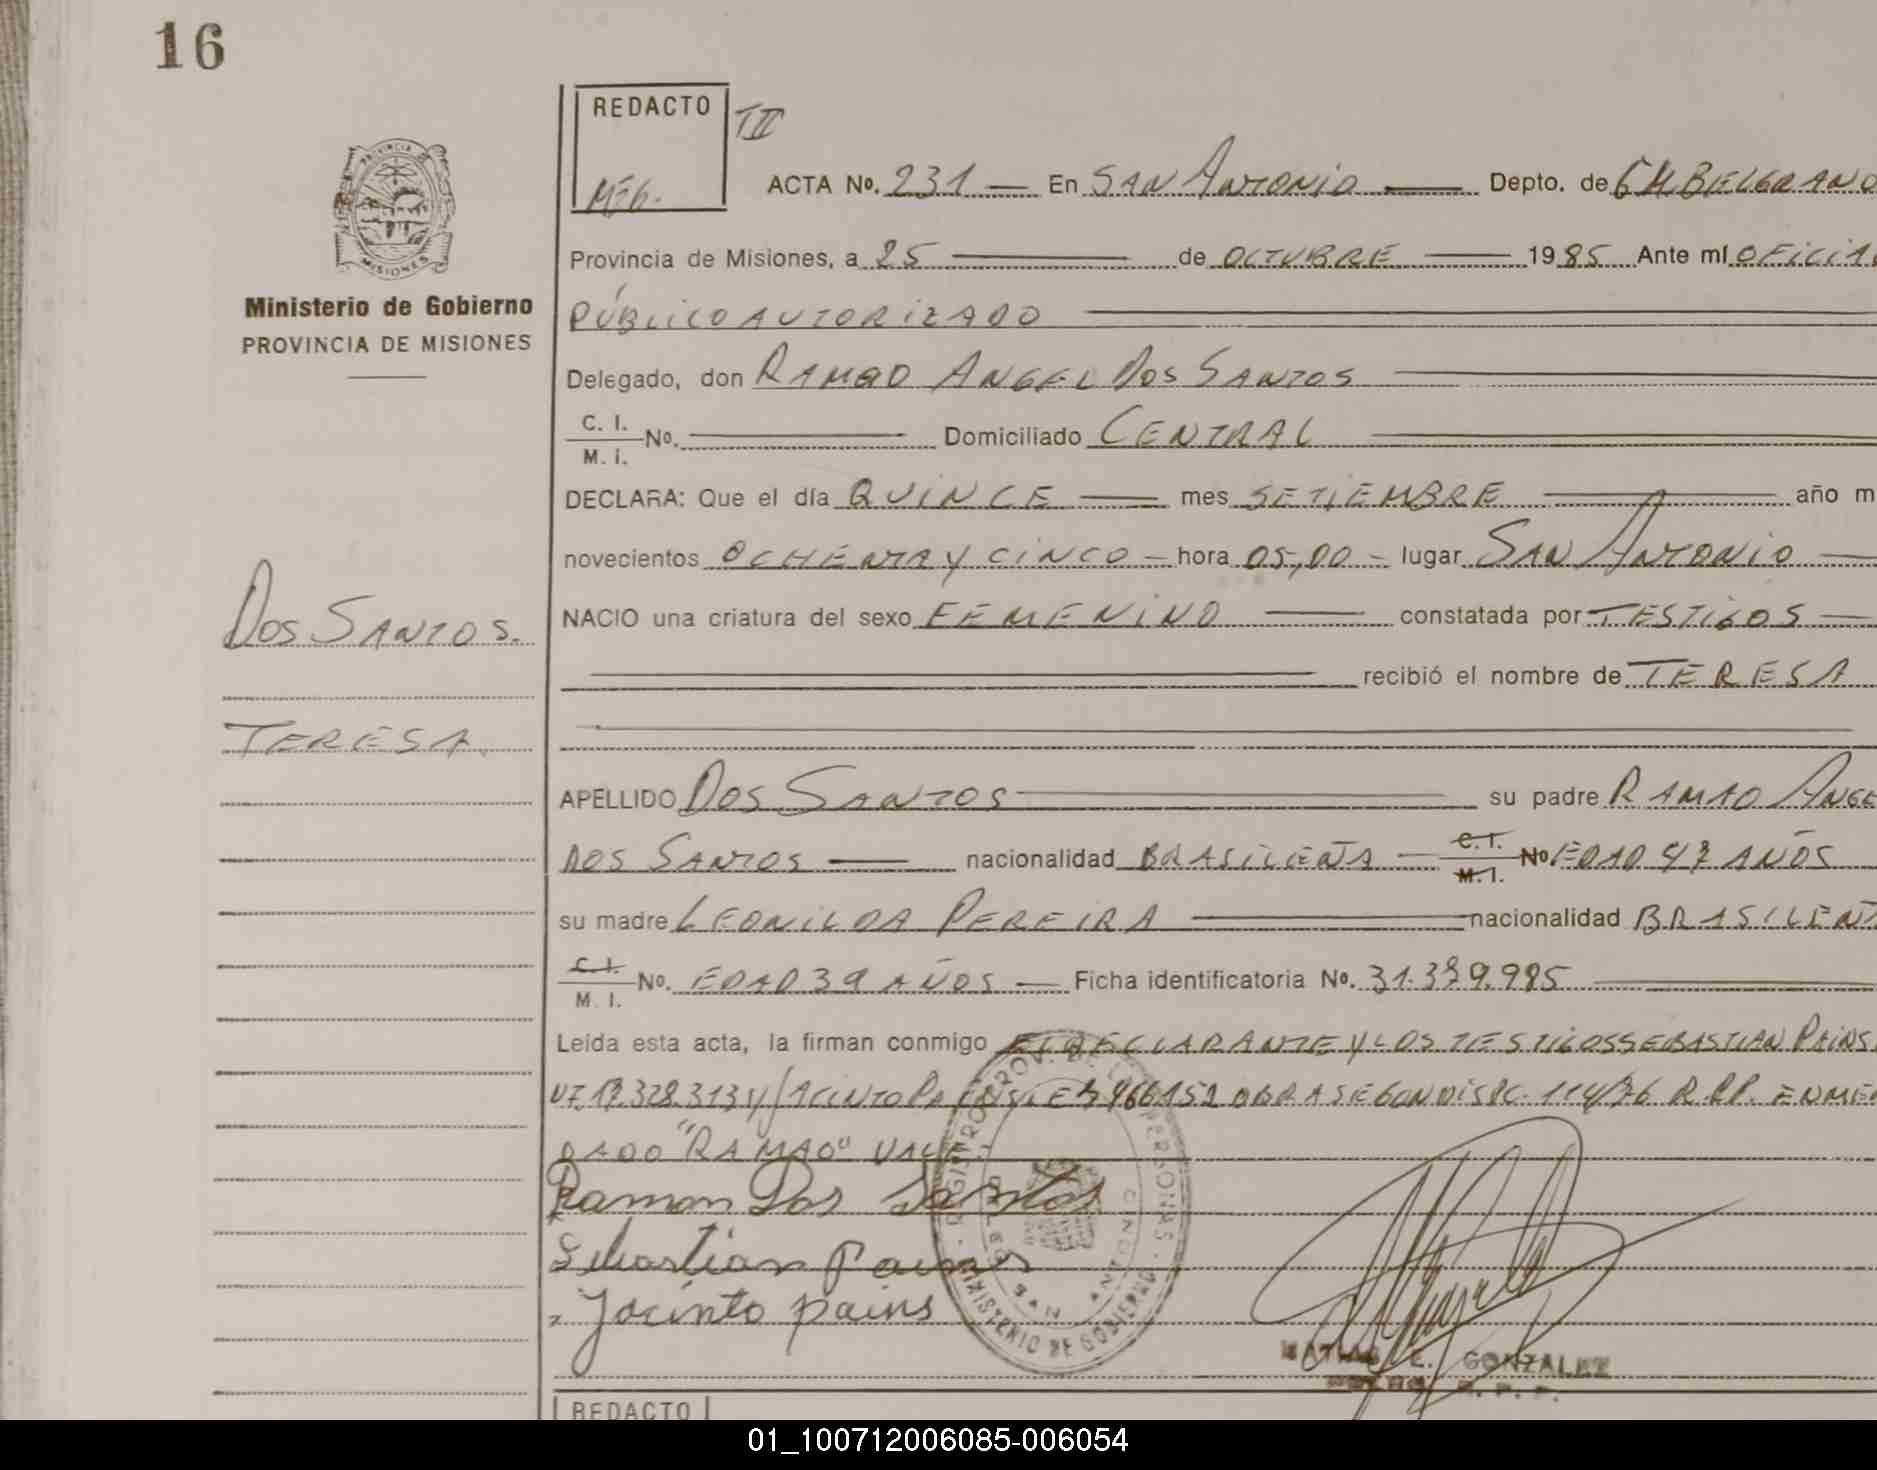 16
REDACTO
TII
ACTA No. 231 — En SAN ANTONIO — Depto. de GM BELGRANO
PROVINCIA DE
MISIONES
Ministerio de Gobierno
PROVINCIA DE MISIONES
Provincia de Misiones, a 25 — de OCTUBRE — 1985 Ante mí OFICIAL
PÚBLICO AUTORIZADO
Delegado, don RAMAO ANGEL DOS SANTOS
C. I.
M. I. No. — Domiciliado CENTRAL
DECLARA: Que el día QUINCE — mes SETIEMBRE — año m
novecientos OCHENTA Y CINCO — hora 05,00 — lugar SAN ANTONIO —
NACIO una criatura del sexo FEMENINO — constatada por TESTIGOS —
DOS SANTOS.
recibió el nombre de TERESA
TERESA
APELLIDO DOS SANTOS — su padre RAMAO ANGE
DOS SANTOS — nacionalidad BRASILEÑA — C. I. M. I. No EDAD 47 AÑOS
su madre LEONILDA PEREIRA — nacionalidad BRASILEÑA
C. I.
M. I. No. EDAD 39 AÑOS — Ficha identificatoria No. 31.339.985
Leída esta acta, la firman conmigo EL DECLARANTE Y LOS TESTIGOS SEBASTIAN PAINS
17.328.313 Y JACINTO PAINS 114/76 R.P.P. ENMEN
DADO "RAMAO" VALE
Ramon Dos Santos
Sebastian Pains
Jacinto pains
REGISTRO PROV. DE LAS PERSONAS
MINISTERIO DE GOBIERNO
SAN ANTONIO
E. GONZALEZ
REDACTO
01_100712006085-006054